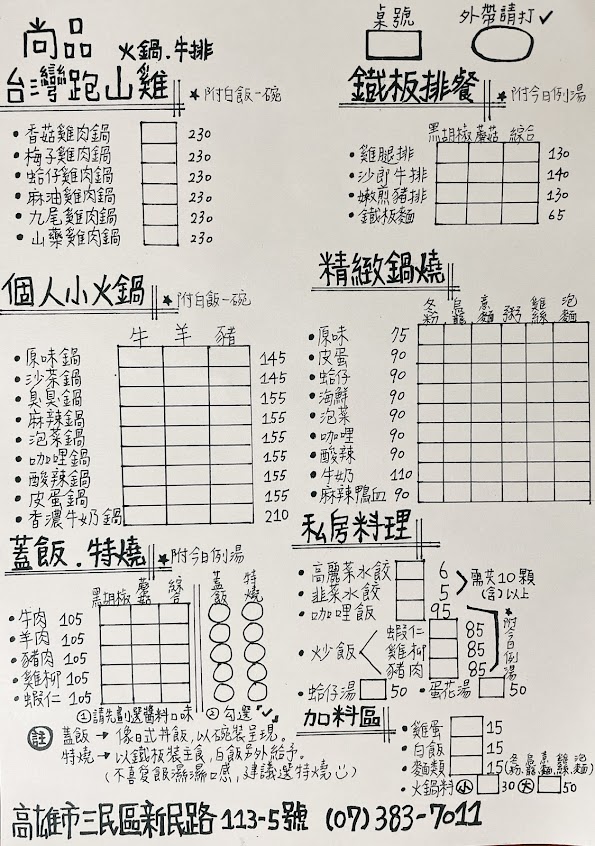 尚品 火鍋.牛排
桌號 外帶請打✓
台灣跑山雞 ★附白飯一碗
•香菇雞肉鍋 230
•梅子雞肉鍋 230
•蛤仔雞肉鍋 230
•麻油雞肉鍋 230
•九尾雞肉鍋 230
•山藥雞肉鍋 230
鐵板排餐 ★附今日例湯
黑胡椒 蘑菇 綜合
•雞腿排 130
•沙朗牛排 140
•嫩煎豬排 130
•鐵板麵 65
個人小火鍋 ★附白飯一碗
牛 羊 豬
•原味鍋 145
•沙茶鍋 145
•臭臭鍋 155
•麻辣鍋 155
•泡菜鍋 155
•咖哩鍋 155
•酸辣鍋 155
•皮蛋鍋 155
•香濃牛奶鍋 210
精緻鍋燒
冬粉 烏龍 意麵 粥 雞絲 泡麵
•原味 75
•皮蛋 90
•蛤仔 90
•海鮮 90
•泡菜 90
•咖哩 90
•酸辣 90
•牛奶 110
•麻辣鴨血 90
蓋飯.特燒 ★附今日例湯
黑胡椒 蘑菇 綜合 蓋飯 特燒
•牛肉 105
•羊肉 105
•豬肉 105
•雞柳 105
•蝦仁 105
①請先劃選醬料口味 ②勾選「✓」
註 蓋飯→像日式丼飯,以碗裝呈現。
特燒→以鐵板裝主食,白飯另外給予。
(不喜愛飯濕濕口感,建議選特燒)
私房料理
•高麗菜水餃 6
•韭菜水餃 5
需共10顆(含)以上
•咖哩飯 95
•炒飯
蝦仁 85
雞柳 85
豬肉 85
★附今日例湯
•蛤仔湯 50 •蛋花湯 50
加料區
•雞蛋 15
•白飯 15
•麵類 15(冬粉、烏龍、意麵、雞絲、泡麵)
•火鍋料 小 30 大 50
高雄市三民區新民路113-5號 (07)383-7011